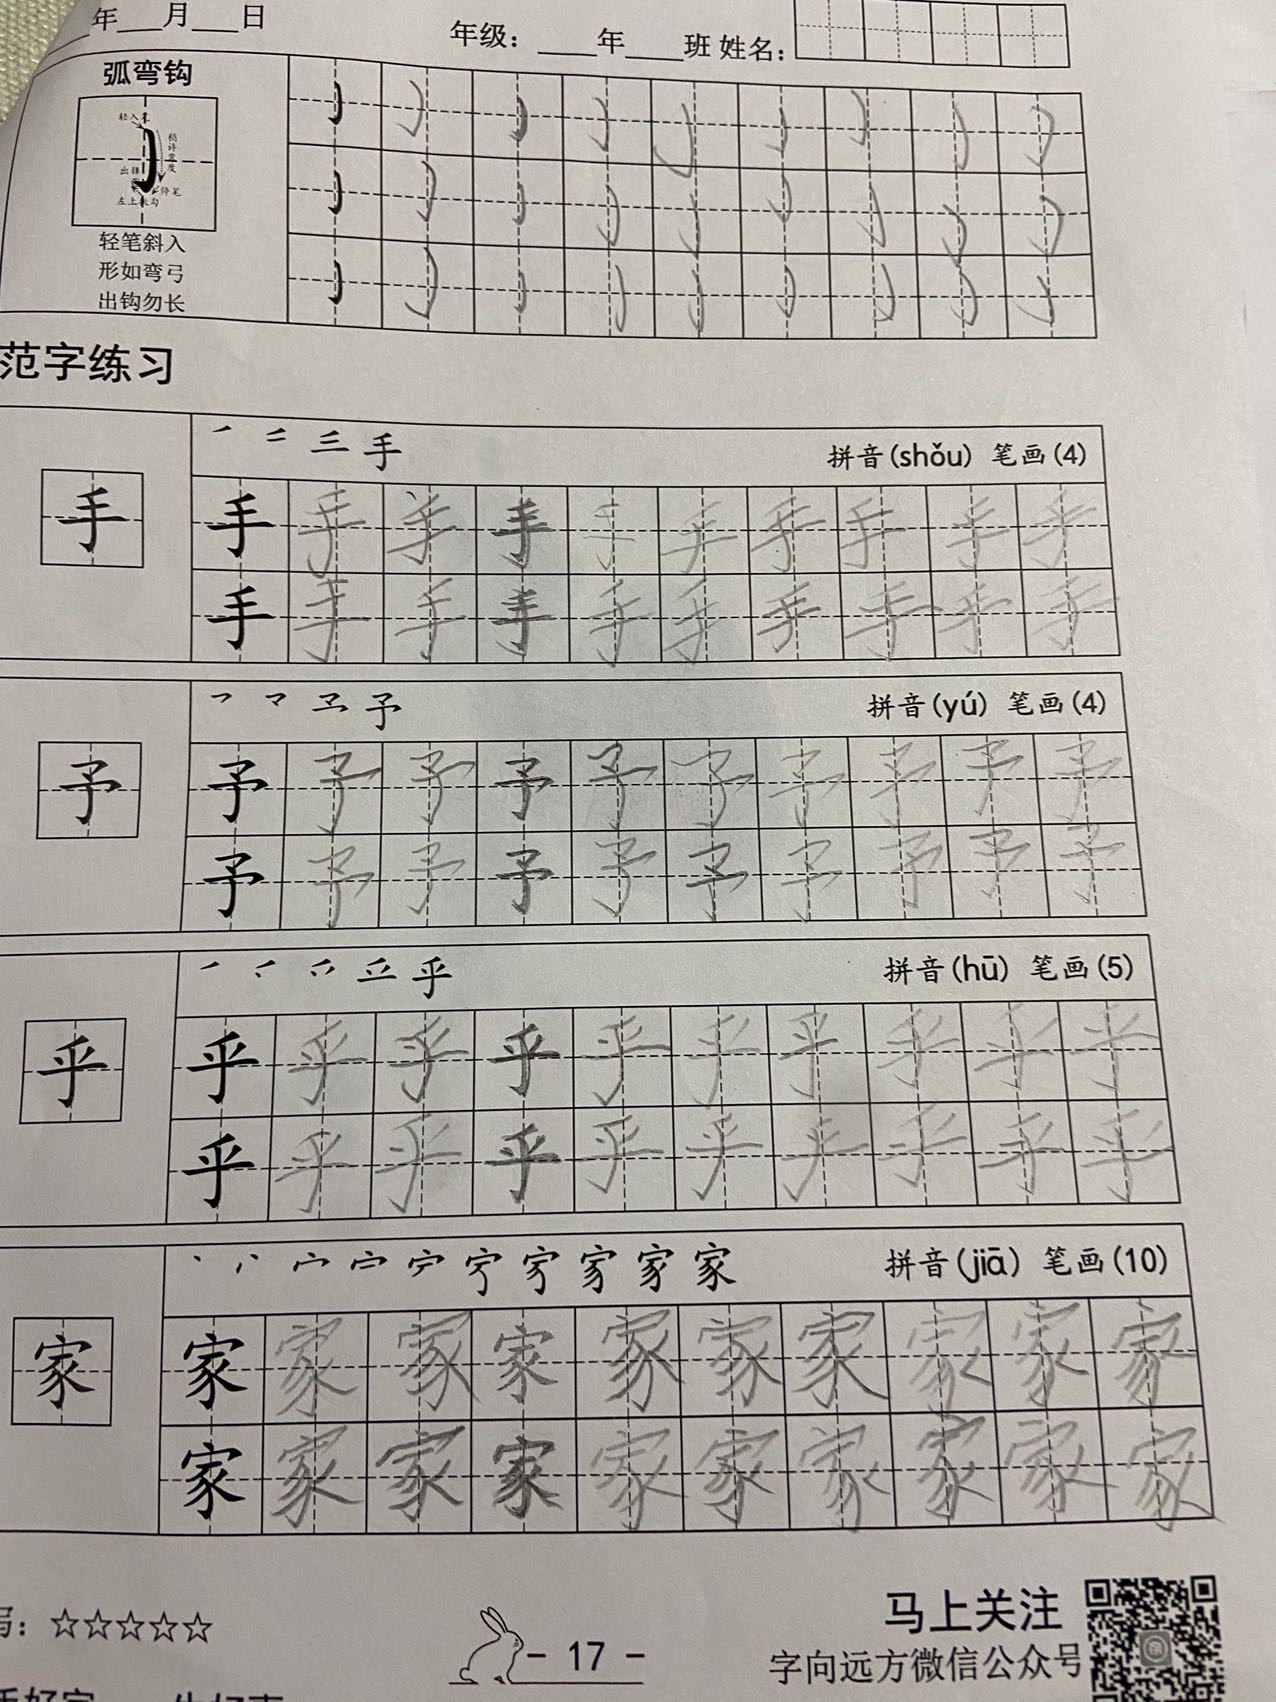 年___月___日
年级：___年___班 姓名：
弧弯钩
出锋
停笔
轻笔斜入
形如弯弓
出钩勿长
范字练习
手 拼音(shǒu) 笔画(4)
手 手 手 手 手 手 手 手 手 手 手
手 手 手 手 手 手 手 手 手 手
予 拼音(yú) 笔画(4)
予 予 予 予 予 予 予 予 予 予 予
予 予 予 予 予 予 予 予 予 予
乎 拼音(hū) 笔画(5)
乎 乎 乎 乎 乎 乎 乎 乎 乎 乎 乎
乎 乎 乎 乎 乎 乎 乎 乎 乎 乎
家 拼音(jiā) 笔画(10)
家 家 家 家 家 家 家 家 家 家 家
家 家 家 家 家 家 家 家 家 家
☆☆☆☆☆
- 17 -
马上关注
字向远方微信公众号